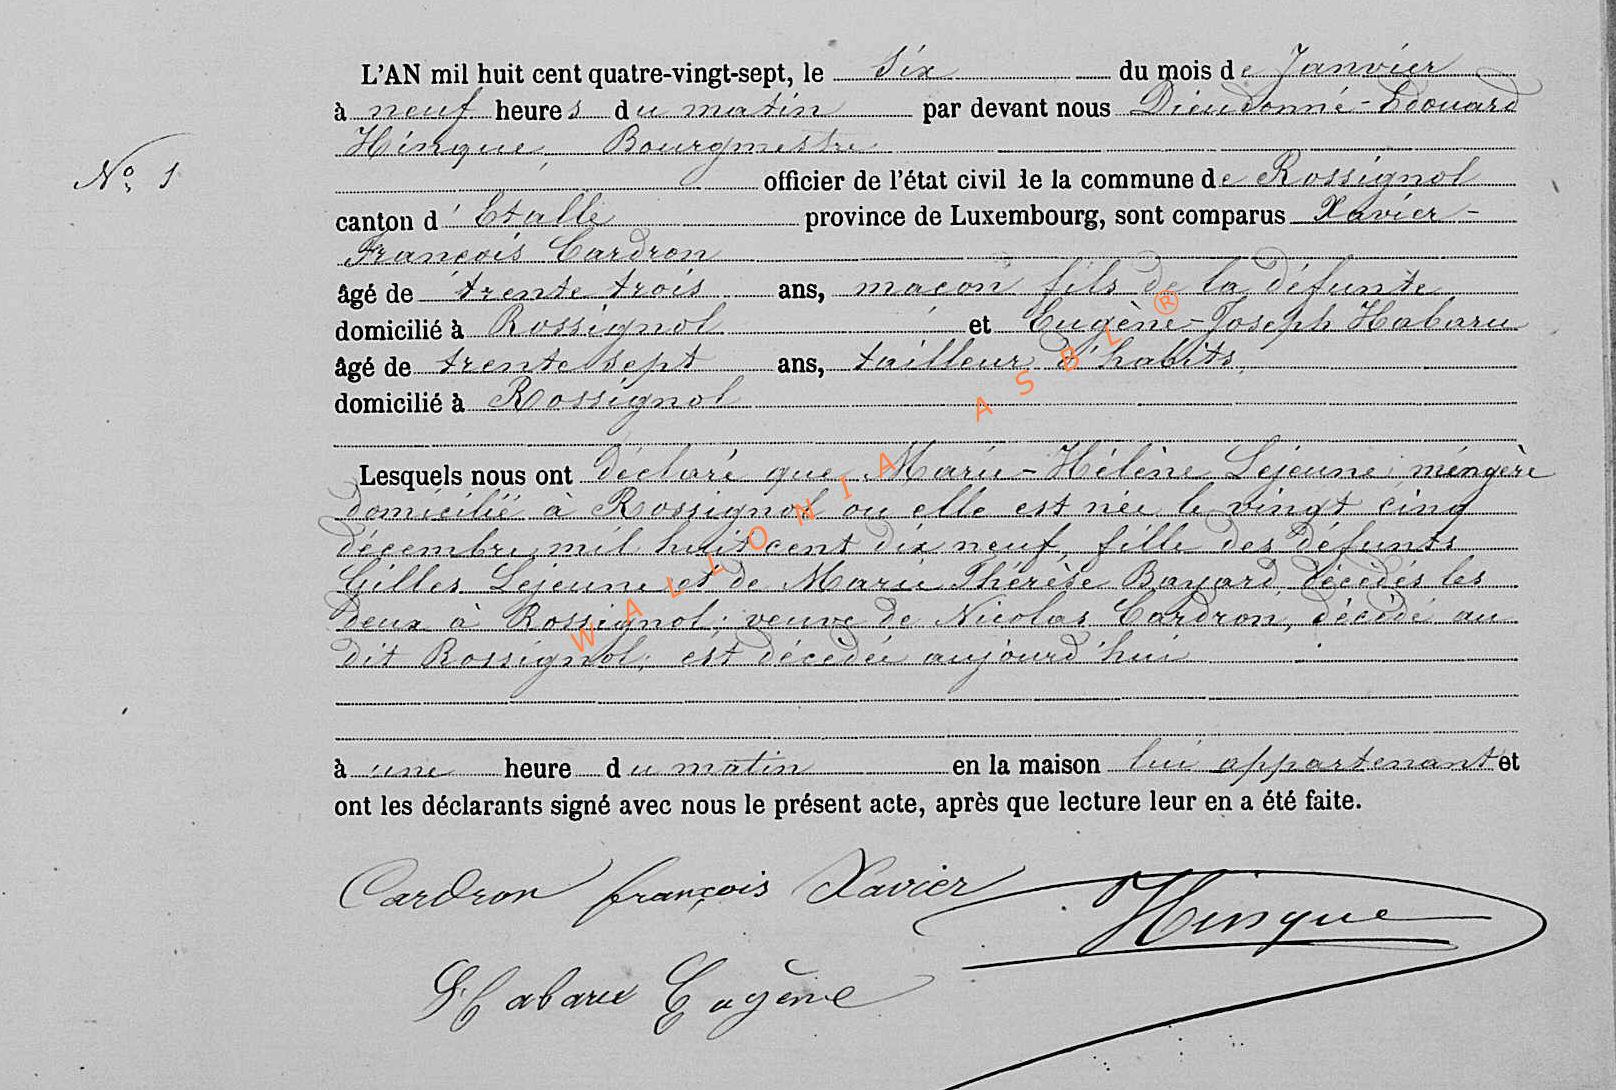 L'AN mil huit cent quatre-vingt-sept, le six du mois de Janvier
à neuf heures du matin par devant nous Dieudonné-Edouard
Hinque, Bourgmestre
N° 1
officier de l'état civil de la commune de Rossignol
canton d'Etalle province de Luxembourg, sont comparus Xavier-
François Cardron
âgé de trente trois ans, maçon fils de la défunte
domicilié à Rossignol et Eugène-Joseph Habaru
âgé de trente sept ans, tailleur d'habits,
domicilié à Rossignol
Lesquels nous ont déclaré que Marie-Hélène Lejeune, méngère
domicilié à Rossignol ou elle est née le vingt cinq
décembre mil huit cent dix neuf, fille des défunts
Gilles Lejeune et de Marie Thérèse Bayard décédés les
deux à Rossignol; veuve de Nicolas Cardron, décédé au
dit Rossignol, est décédée aujourd'hui
à une heure du matin en la maison lui appartenant et
ont les déclarants signé avec nous le présent acte, après que lecture leur en a été faite.
Cardron françois Xavier
Hinque
Habaru Eugène
WALLONIA ASBL ®